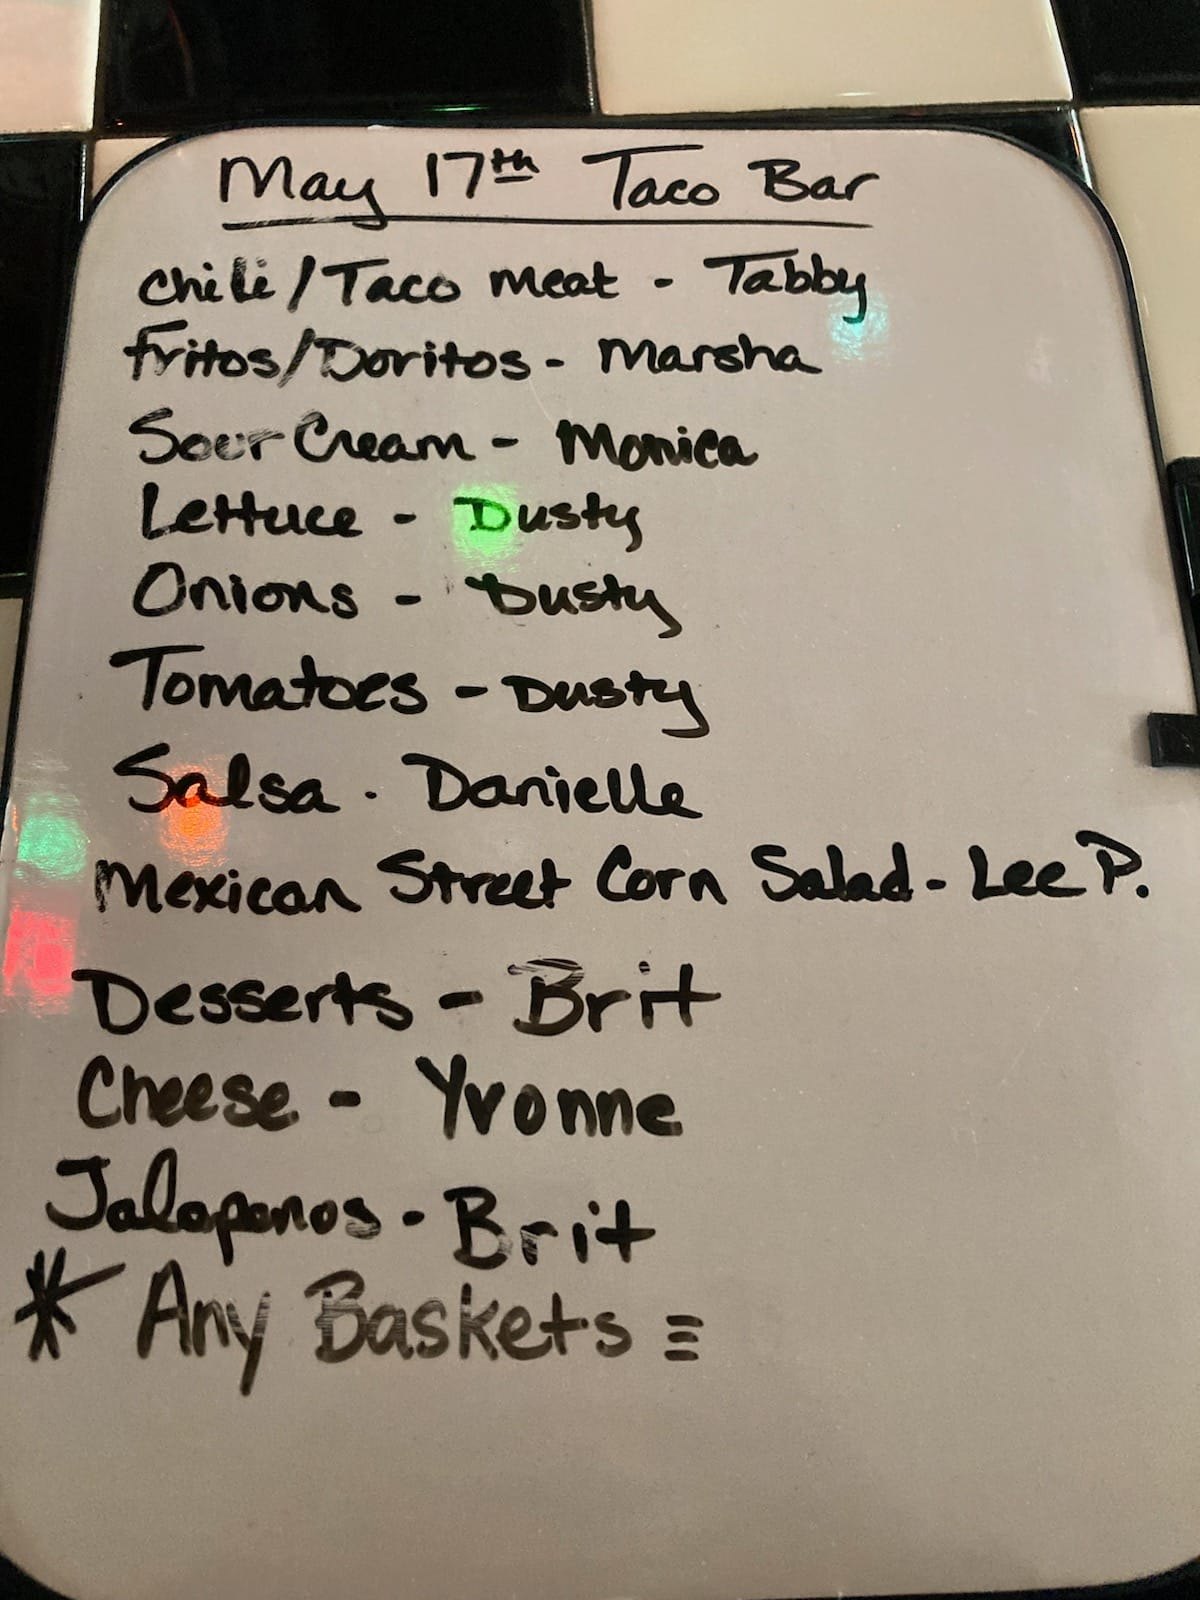 May 17th Taco Bar
Chili/Taco meat - Tabby
Fritos/Doritos - Marsha
Sour Cream - Monica
Lettuce - Dusty
Onions - Dusty
Tomatoes - Dusty
Salsa - Danielle
Mexican Street Corn Salad - Lee P.
Desserts - Brit
Cheese - Yvonne
Jalapenos - Brit
* Any Baskets ≡